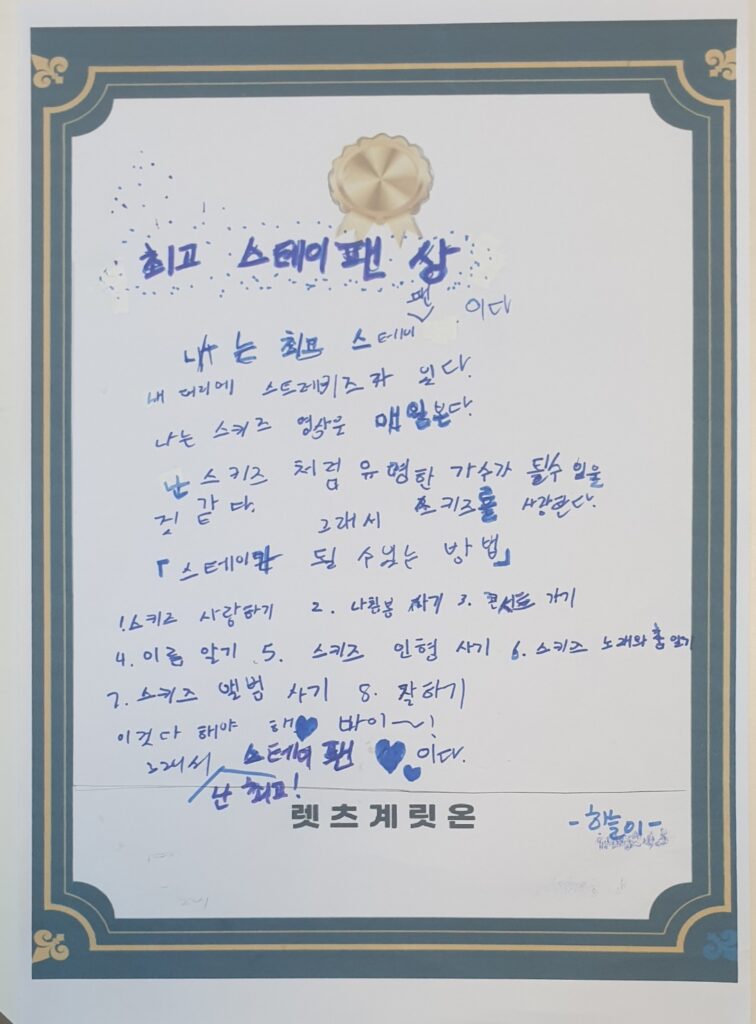 최고 스테이팬 상
나는 최고 스테이 팬 이다
내 머리에 스트레키즈가 있다.
나는 스키즈 영상을 매일본다.
난 스키즈 처럼 유명한 가수가 될수 있을
것 같다. 그래서 스키즈를 사랑한다.
「스테이가 될 수있는 방법」
1. 스키즈 사랑하기 2. 나침봉 사기 3. 콘서트 가기
4. 이름 알기 5. 스키즈 인형 사기 6. 스키즈 노래와 춤 알기
7. 스키즈 앨범 사기 8. 잘하기
이것다 해야 해 바이~!
그래서 난 최고! 스테이 팬 이다.
렛츠계릿온
-하늘이-